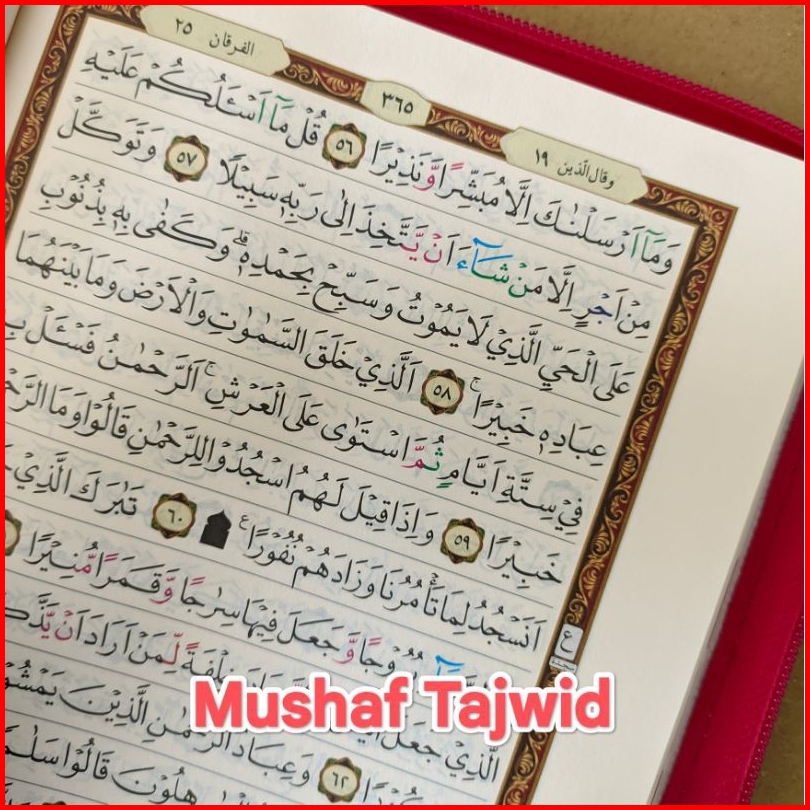 الفرقان ٢٥
٣٦٥
وقال الذين ١٩
وَمَآ اَرْسَلْنٰكَ اِلَّا مُبَشِّرًا وَّنَذِيْرًا ٥٦ قُلْ مَآ اَسْـَٔلُكُمْ عَلَيْهِ
مِنْ اَجْرٍ اِلَّا مَنْ شَاۤءَ اَنْ يَّتَّخِذَ اِلٰى رَبِّهٖ سَبِيْلًا ٥٧ وَتَوَكَّلْ
عَلَى الْحَيِّ الَّذِيْ لَا يَمُوْتُ وَسَبِّحْ بِحَمْدِهٖۗ وَكَفٰى بِهٖ بِذُنُوْبِ
عِبَادِهٖ خَبِيْرًا ۚ ٥٨ اَلَّذِيْ خَلَقَ السَّمٰوٰتِ وَالْاَرْضَ وَمَا بَيْنَهُمَا
فِيْ سِتَّةِ اَيَّامٍ ثُمَّ اسْتَوٰى عَلَى الْعَرْشِ ۚ اَلرَّحْمٰنُ فَسْـَٔلْ
خَبِيْرًا ٥٩ وَاِذَا قِيْلَ لَهُمُ اسْجُدُوْا لِلرَّحْمٰنِ قَالُوْا وَمَا
اَنَسْجُدُ لِمَا تَأْمُرُنَا وَزَادَهُمْ نُفُوْرًا ۩ ٦٠ تَبٰرَكَ الَّذِيْ
وَّجَعَلَ فِيْهَا سِرٰجًا وَّقَمَرًا مُّنِيْرًا
لِّمَنْ اَرَادَ اَنْ
الَّذِيْ جَعَلَ
٦٢ وَعِبَادُ الرَّحْمٰنِ الَّذِيْنَ
قَالُوْا سَلٰمًا
ع
سجدة
Mushaf Tajwid